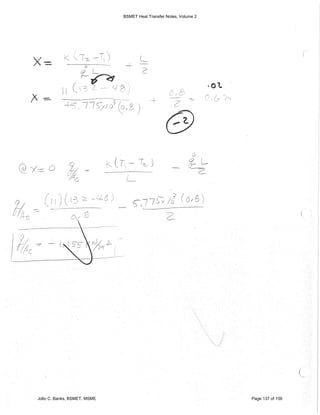 BSMET Heat Transfer Notes, Volume 2
X = K (T₂ - T₁) / q̇ L + L / 2
.02
X = 11 (132 - 48) / +5.775x10³ (0.8) + 0.8 / 2 = 0.6 m
-2
@ x = 0 q̇ / Ac = K (T₁ - T₂) / L - q̇ L / 2
q̇/Ac = (11)(132 - 48) / 0.8 - 5.775x10³ (0.8) / 2
q̇/Ac = - 1,155 W/m²
Julio C. Banks, BSMET, MSME
Page 137 of 156